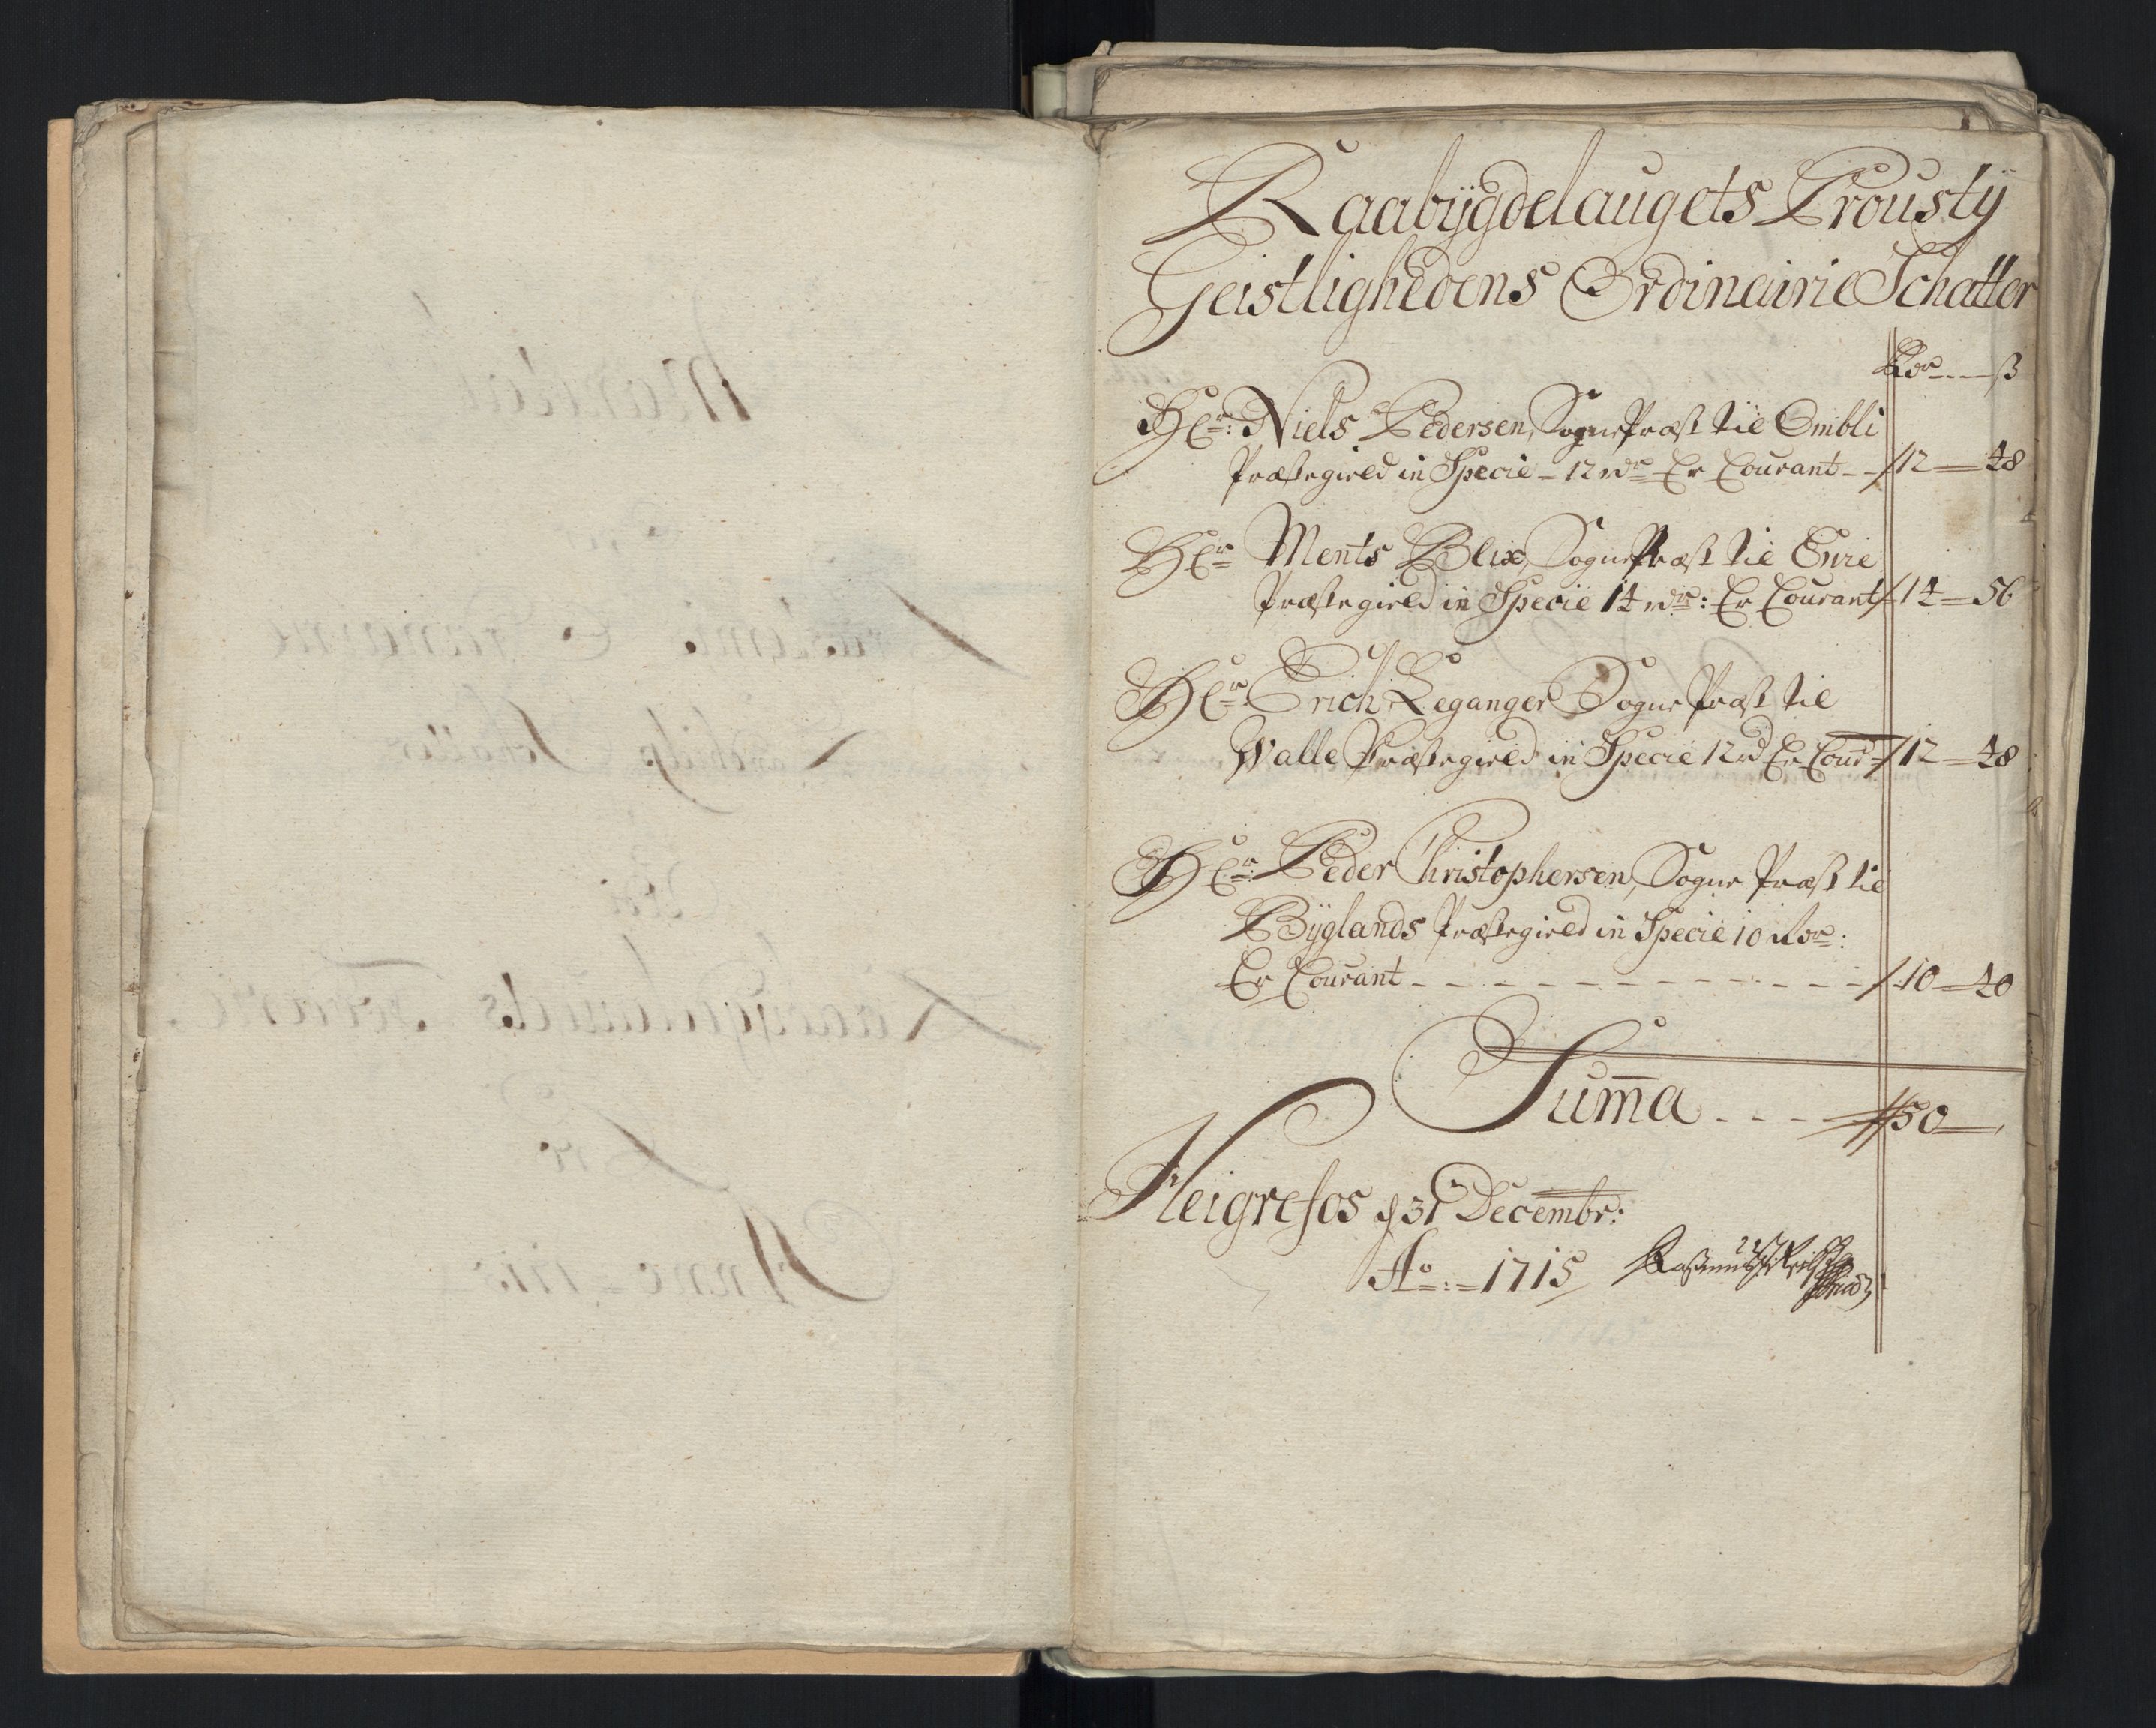 Raabÿgdelaugets Proustÿ
Geistlighedens Ordinairie Schatter
Rdr ß
Hr: Niels Pedersen, Sogne Præst til Ombli
Præstegield in Specie 12 rdr Er Courant 12 48
Hr Ments Blix, Sogne Præst til Evie
Præstegield in Specie 14 rdr: Er Courant 14 56
Hr Erich Leganger Sogne Præst til
Walle Præstegield in Specie 12 rd Er Cour 12 48
Hr: Peder Christophersen, Sogne Præst til
Bÿglands Præstegield in Specie 10 rdr:
Er Courant 10 40
Sum̄a 50
Neigrefos d 31 Decembr:
Ao: 1715